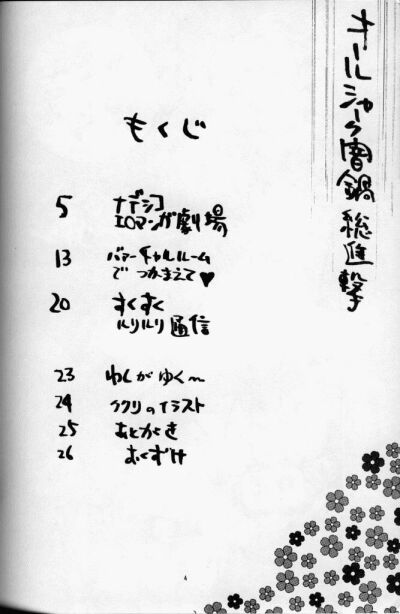 オールジャーク闇鍋総進撃
もくじ
5 ナデシコ
エロマンガ劇場
13 パワーチャルルーム
でつかまえて♥
20 すくすく
ルリルリ通信
23 わしがゆく〜
24 ククリのイラスト
25 あとがき
26 おくずけ
4